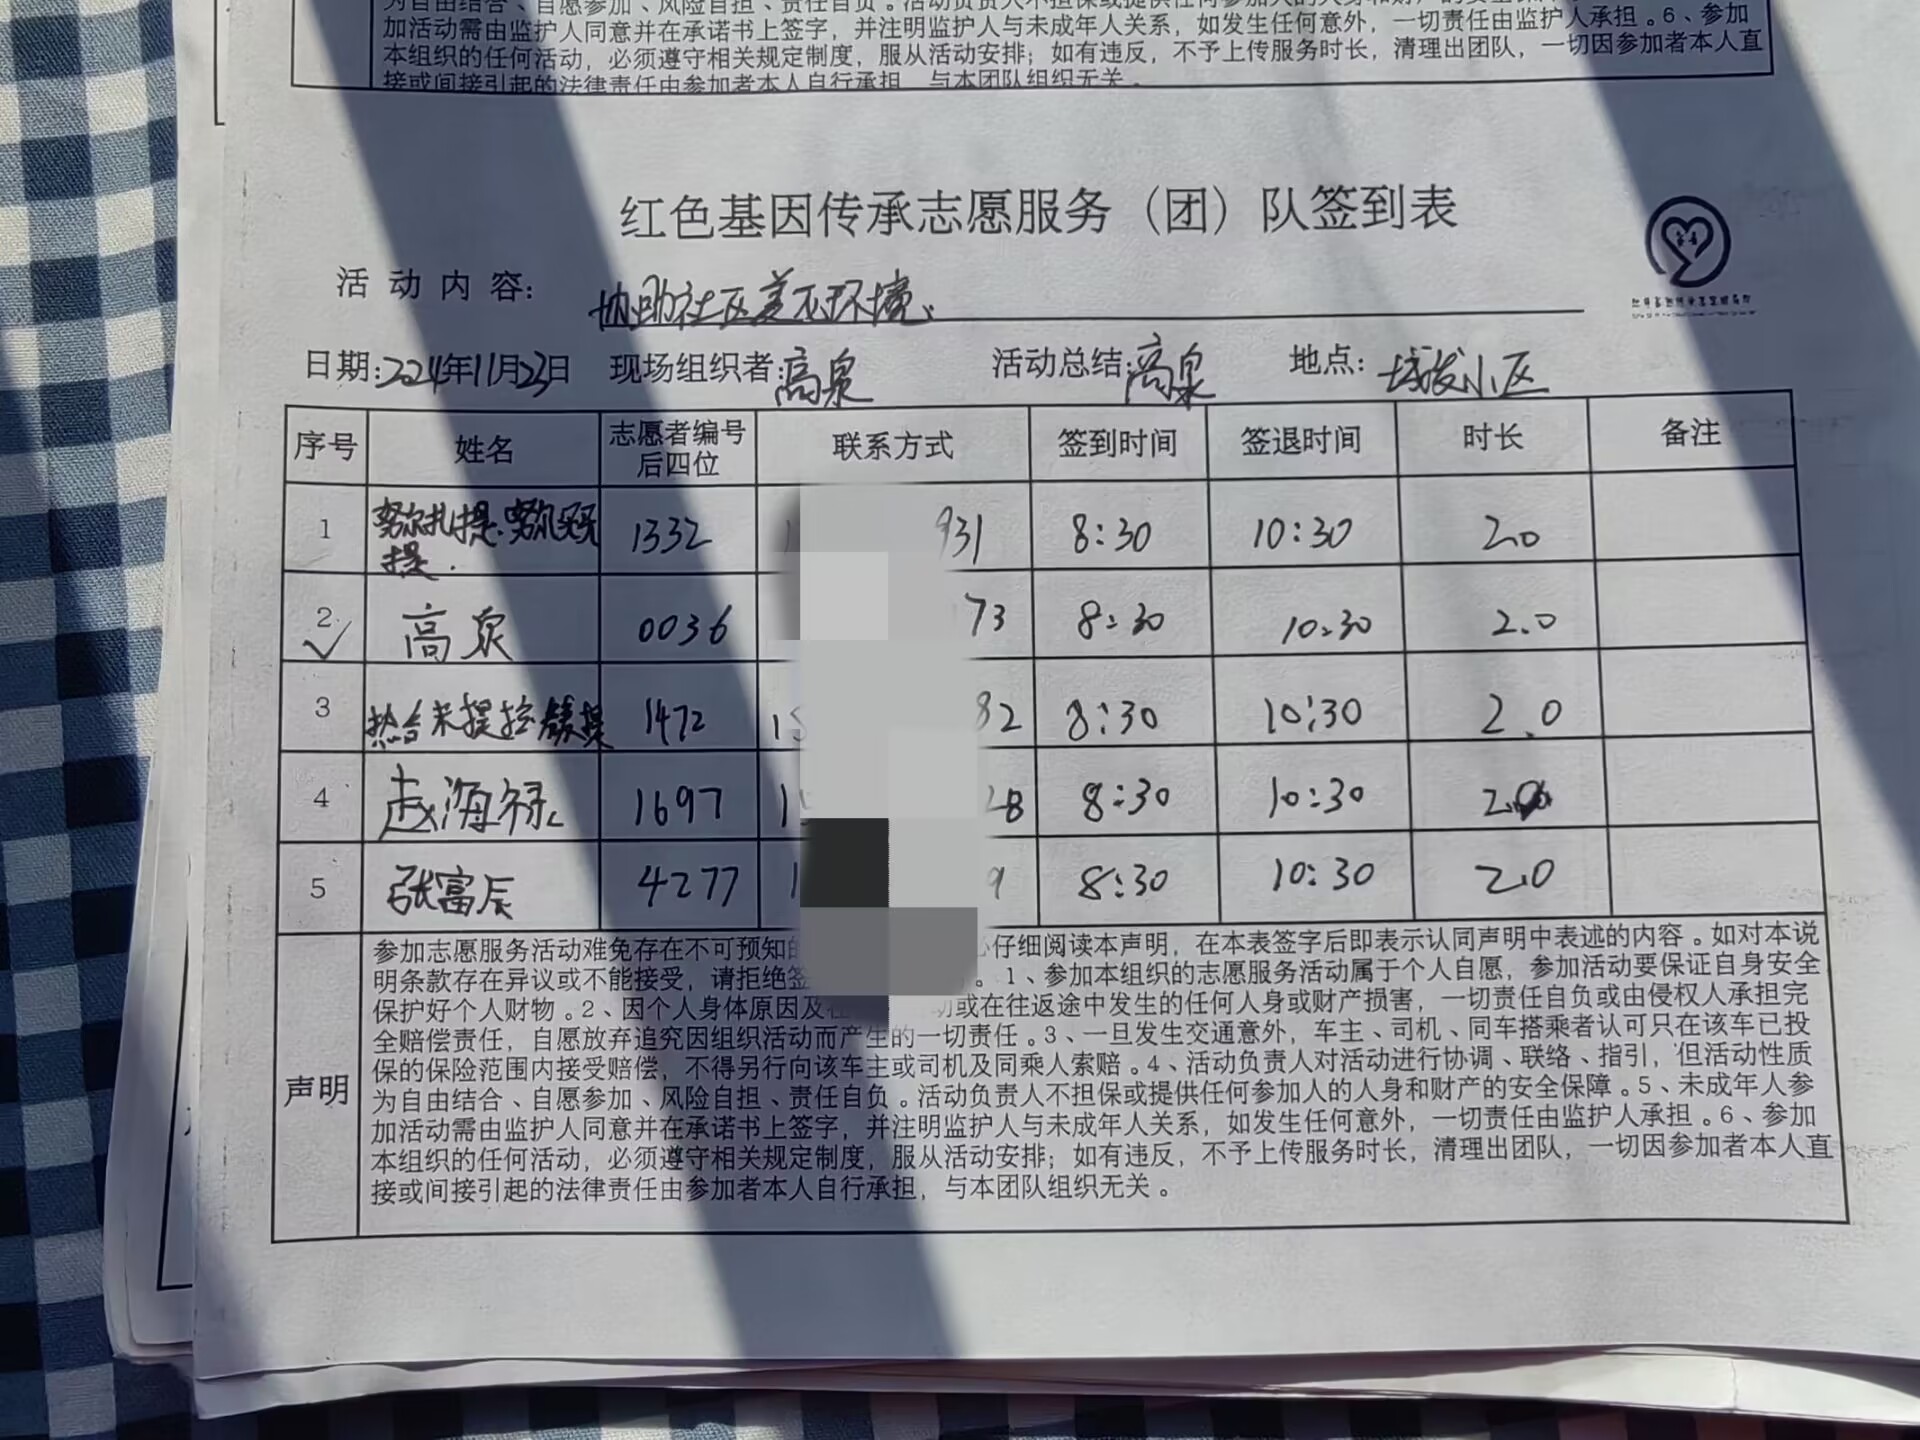 加活动需由监护人同意并在承诺书上签字，并注明监护人与未成年人关系，如发生任何意外，一切责任由监护人承担。6、参加
本组织的任何活动，必须遵守相关规定制度，服从活动安排；如有违反，不予上传服务时长，清理出团队，一切因参加者本人直
接或间接引起的法律责任由参加者本人自行承担，与本团队组织无关。
红色基因传承志愿服务（团）队签到表
活动内容：协助社区美化环境
日期：2024年11月23日 现场组织者：高泉 活动总结：高泉 地点：小区
序号 姓名 志愿者编号后四位 联系方式 签到时间 签退时间 时长 备注
1 努尔扎提·努尔 提 1332 1 931 8:30 10:30 2.0
2 高泉 0036 73 8:30 10:30 2.0
3 米提 提 1472 15 82 8:30 10:30 2.0
4 赵海禄 1697 1 28 8:30 10:30 2.0
5 张富辰 4277 1 9 8:30 10:30 2.0
声明
参加志愿服务活动难免存在不可预知的 仔细阅读本声明，在本表签字后即表示认同声明中表述的内容。如对本说
明条款存在异议或不能接受，请拒绝签 。1、参加本组织的志愿服务活动属于个人自愿，参加活动要保证自身安全
保护好个人财物。2、因个人身体原因及在 动或在往返途中发生的任何人身或财产损害，一切责任自负或由侵权人承担完
全赔偿责任，自愿放弃追究因组织活动而产生的一切责任。3、一旦发生交通意外，车主、司机、同车搭乘者认可只在该车已投
保的保险范围内接受赔偿，不得另行向该车主或司机及同乘人索赔。4、活动负责人对活动进行协调、联络、指引，但活动性质
为自由结合、自愿参加、风险自担、责任自负。活动负责人不担保或提供任何参加人的人身和财产的安全保障。5、未成年人参
加活动需由监护人同意并在承诺书上签字，并注明监护人与未成年人关系，如发生任何意外，一切责任由监护人承担。6、参加
本组织的任何活动，必须遵守相关规定制度，服从活动安排；如有违反，不予上传服务时长，清理出团队，一切因参加者本人直
接或间接引起的法律责任由参加者本人自行承担，与本团队组织无关。